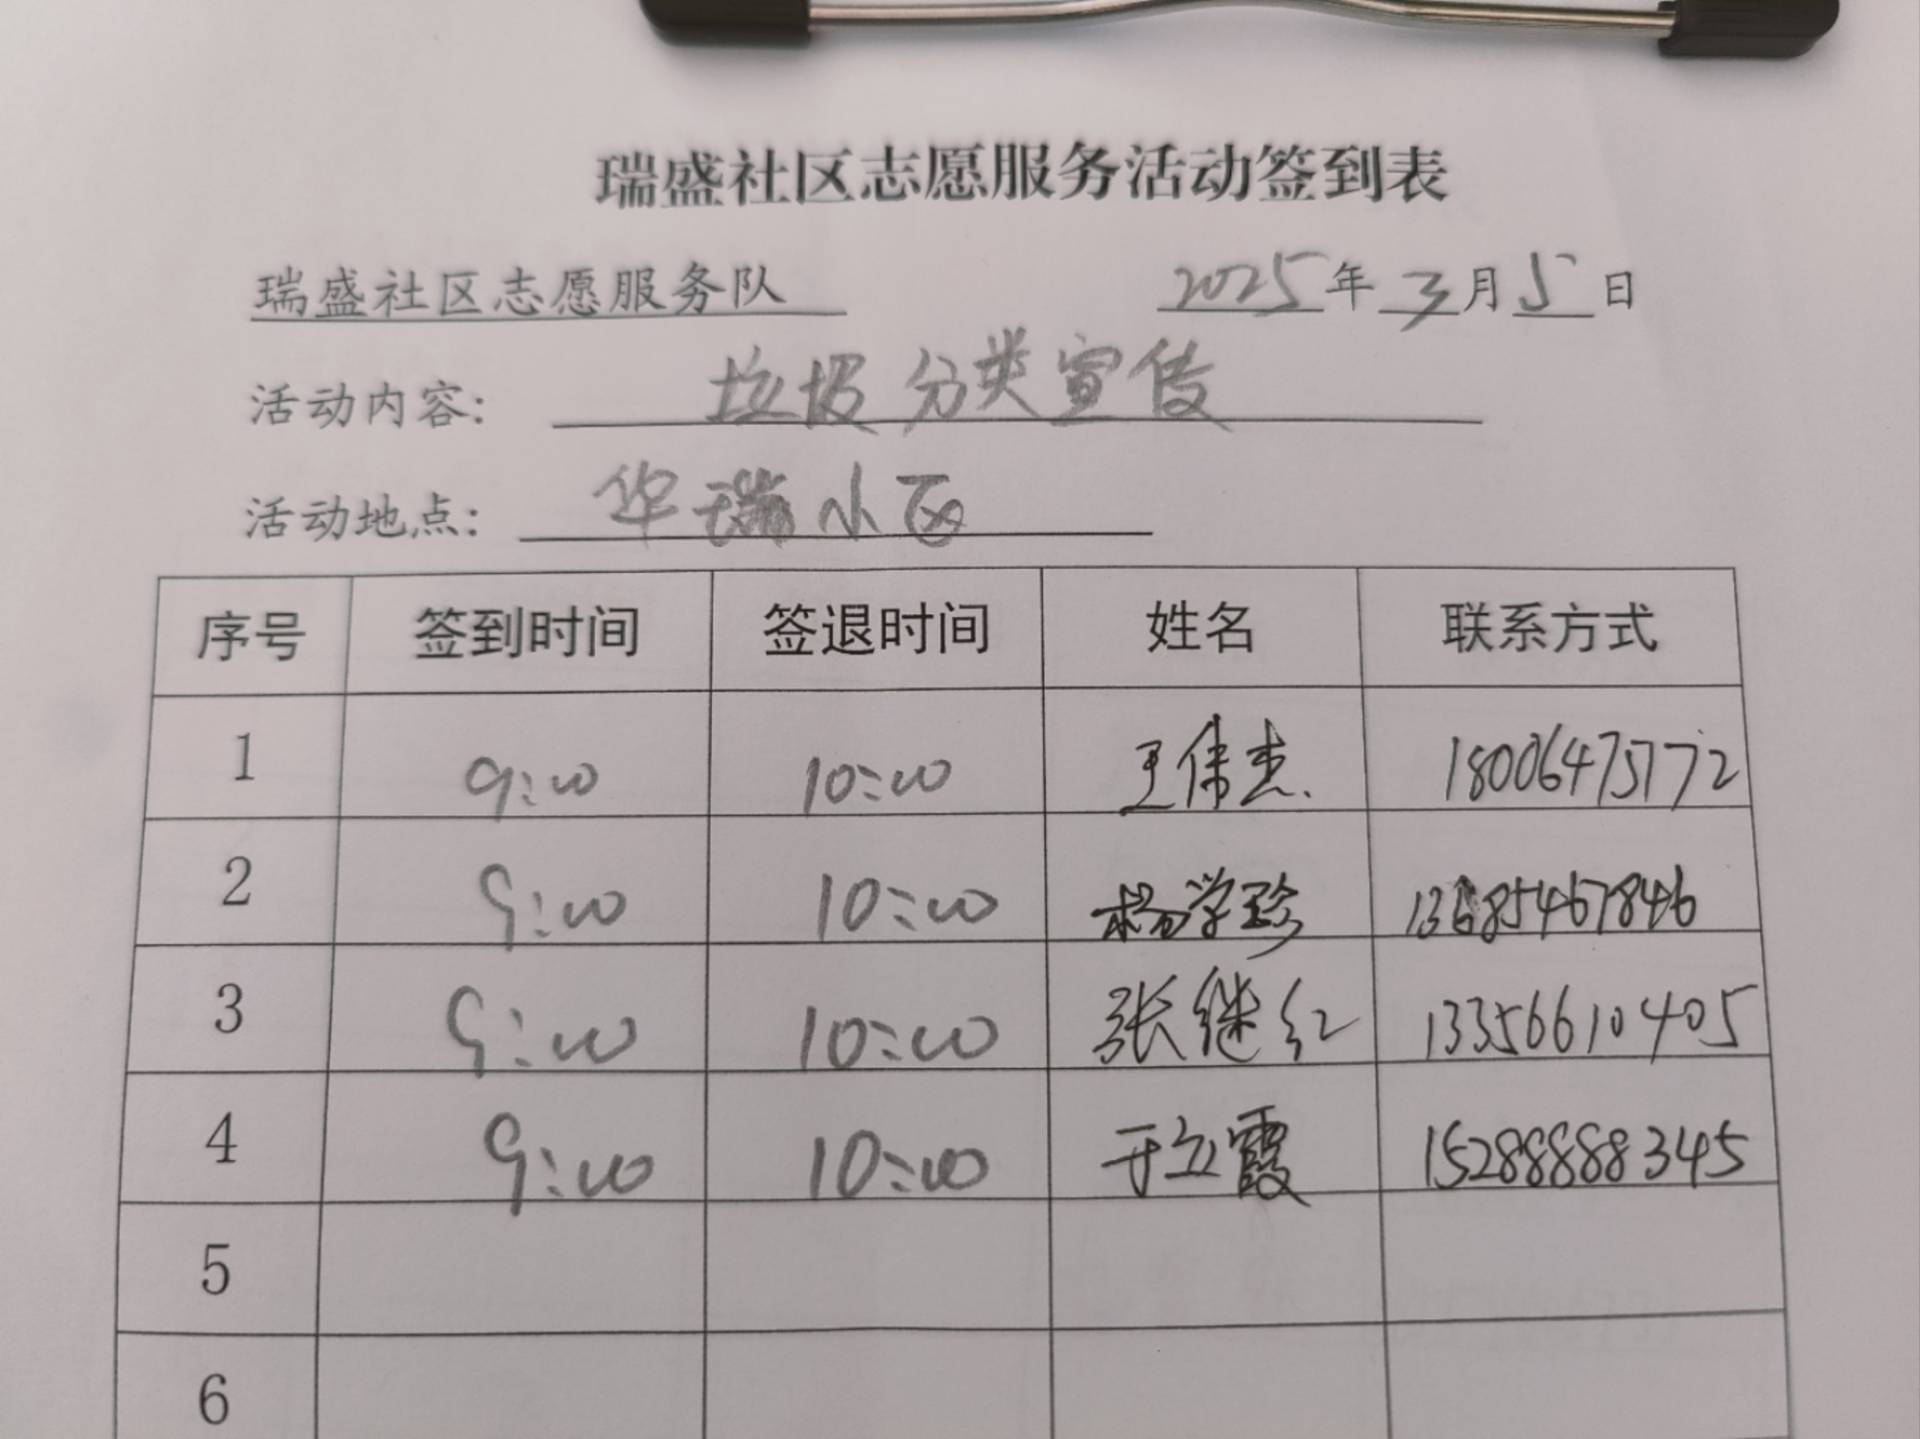 瑞盛社区志愿服务活动签到表
瑞盛社区志愿服务队 2025年3月5日
活动内容: 垃圾分类宣传
活动地点: 华瑞小区
序号 签到时间 签退时间 姓名 联系方式
1 9:00 10:00 王伟杰 18006475772
2 9:00 10:00 杨学珍 13685467846
3 9:00 10:00 张继红 13356610405
4 9:00 10:00 于立霞 15288888345
5
6